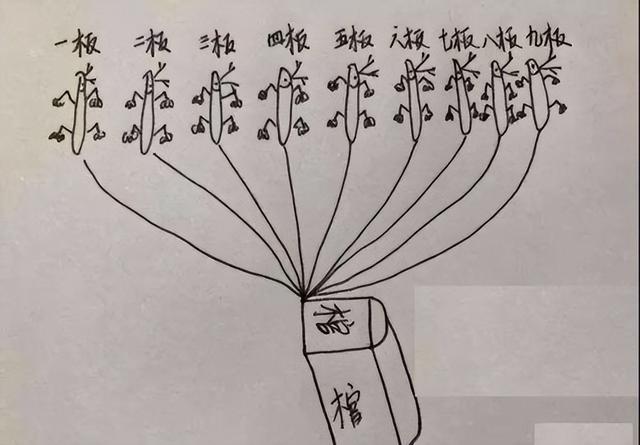 一板 二板 三板 四板 五板 六板 七板 八板 九板
棺
棺